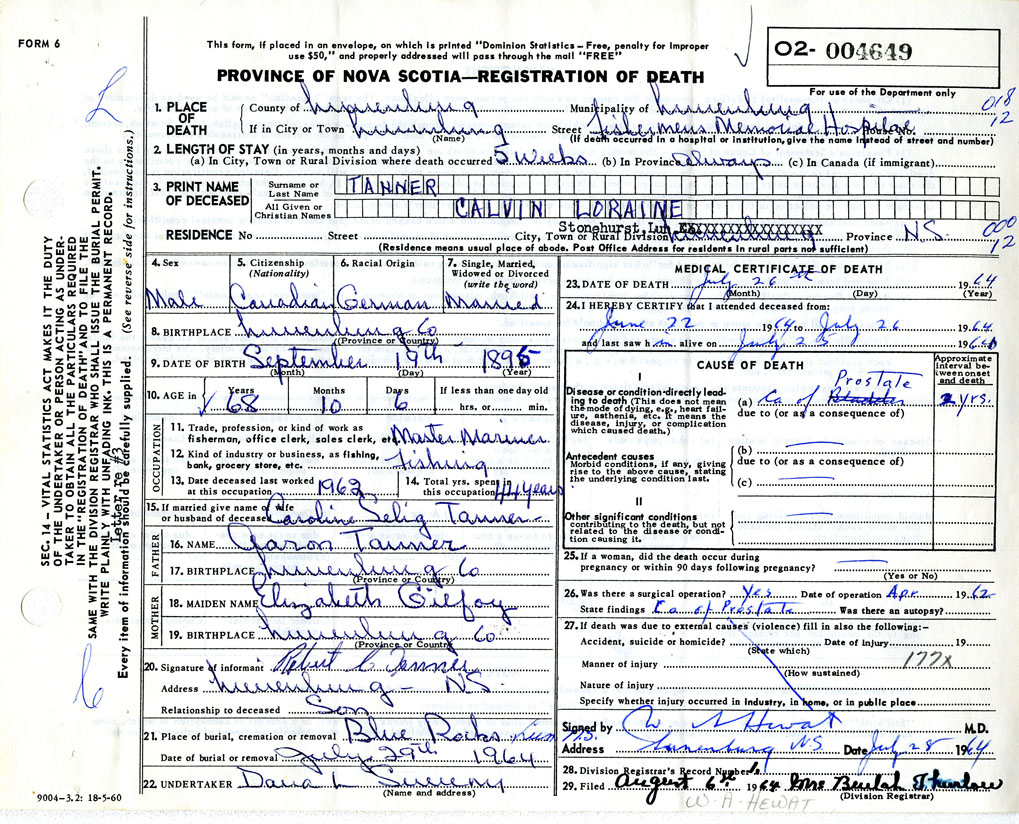 FORM 6
This form, if placed in an envelope, on which is printed "Dominion Statistics – Free, penalty for improper
use $50," and properly addressed will pass through the mail "FREE"
PROVINCE OF NOVA SCOTIA—REGISTRATION OF DEATH
O2- 004649
For use of the Department only
1. PLACE OF DEATH County of Lunenburg Municipality of Lunenburg 018
If in City or Town Lunenburg Street Fishermens Memorial Hospital House No. 12
(Name) (If death occurred in a hospital or institution, give the name instead of street and number)
2. LENGTH OF STAY (in years, months and days)
(a) In City, Town or Rural Division where death occurred 5 weeks (b) In Province always (c) In Canada (if immigrant)
3. PRINT NAME OF DECEASED Surname or Last Name TANNER
All Given or Christian Names CALVIN LORAINE
Stonehurst, Lun
RESIDENCE No Street City, Town or Rural Division Province N.S. 000
12
(Residence means usual place of abode. Post Office Address for residents in rural parts not sufficient)
4. Sex 5. Citizenship (Nationality) 6. Racial Origin 7. Single, Married, Widowed or Divorced (write the word)
Male Canadian German Married
8. BIRTHPLACE Lunenburg Co
(Province or Country)
9. DATE OF BIRTH September 19th 1895
(Month) (Day) (Year)
10. AGE in Years Months Days If less than one day old
68 10 6 hrs. or min.
OCCUPATION
11. Trade, profession, or kind of work as
fisherman, office clerk, sales clerk, etc. Master Mariner
12. Kind of industry or business, as fishing,
bank, grocery store, etc. fishing
13. Date deceased last worked at this occupation 1962 14. Total yrs. spent in this occupation 44 years
15. If married give name of wife
or husband of deceased Caroline Selig Tanner
FATHER
16. NAME Aaron Tanner
17. BIRTHPLACE Lunenburg Co
(Province or Country)
MOTHER
18. MAIDEN NAME Elizabeth
19. BIRTHPLACE Lunenburg Co
(Province or Country)
20. Signature of informant Robert C Tanner
Address Lunenburg - NS.
Relationship to deceased Son
21. Place of burial, cremation or removal Blue Rocks
Date of burial or removal July 29th 1964
22. UNDERTAKER Dana L Sweeny
(Name and address)
9004-3.2: 18-5-60
MEDICAL CERTIFICATE OF DEATH
23. DATE OF DEATH July 26th 1964
(Month) (Day) (Year)
24. I HEREBY CERTIFY that I attended deceased from:
June 22 1964 to July 26 1964
and last saw him alive on July 25 1964
CAUSE OF DEATH
Approximate interval between onset and death
I
Disease or condition directly leading to death (This does not mean the mode of dying, e.g., heart failure, asthenia, etc. It means the disease, injury, or complication which caused death.)
Prostate
(a) Ca of Bladder 2 yrs.
due to (or as a consequence of)
Antecedent causes
Morbid conditions, if any, giving rise to the above cause, stating the underlying condition last.
(b)
due to (or as a consequence of)
(c)
II
Other significant conditions
contributing to the death, but not related to the disease or condition causing it.
25. If a woman, did the death occur during
pregnancy or within 90 days following pregnancy?
(Yes or No)
26. Was there a surgical operation? Yes Date of operation Apr. 1962
State findings Ca of Prostate Was there an autopsy?
27. If death was due to external causes (violence) fill in also the following:-
Accident, suicide or homicide? Date of injury 19
(State which)
Manner of injury 177x
(How sustained)
Nature of injury
Specify whether injury occurred in Industry, in home, or in public place
Signed by W A Hewat M.D.
Address Lunenburg N.S Date July 28 1964
28. Division Registrar's Record Number
29. Filed August 6th 1964 Mrs Beulah
(Division Registrar)
W. A. HEWAT
SEC. 14 – VITAL STATISTICS ACT MAKES IT THE DUTY
OF THE UNDERTAKER OR PERSON ACTING AS UNDER-
TAKER TO OBTAIN ALL THE PARTICULARS REQUIRED
IN THE "REGISTRATION OF DEATH" AND TO FILE THE
SAME WITH THE DIVISION REGISTRAR WHO SHALL ISSUE THE BURIAL PERMIT.
WRITE PLAINLY WITH UNFADING INK. THIS IS A PERMANENT RECORD.
Letter to #3
Every item of information should be carefully supplied. (See reverse side for instructions.)